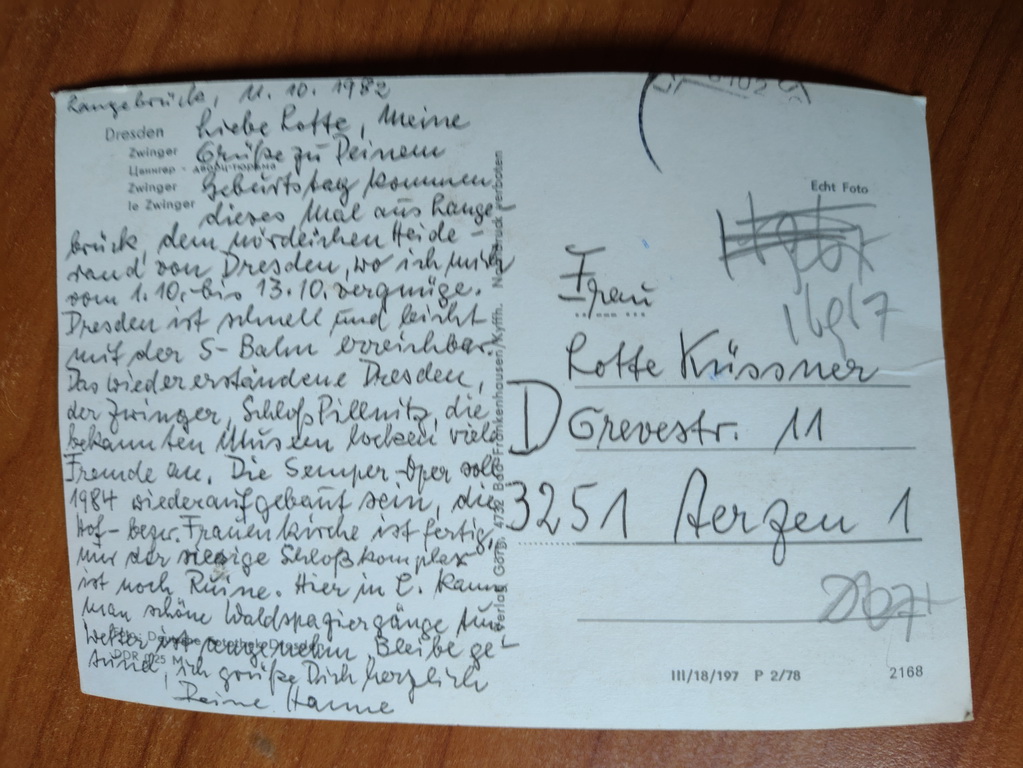 Langebrück, 11.10.1982
Dresden
Zwinger
Цвингер - дворец-тюрана
Zwinger
le Zwinger
Liebe Lotte, Meine
Grüße zu Deinem
Geburtstag kommen
dieses Mal aus Lange-
brück, dem nördlichen Heide-
rand von Dresden, wo ich mich
vom 1.10. bis 13.10. vergnüge.
Dresden ist schnell und leicht
mit der S-Bahn erreichbar.
Das wiedererstandene Dresden,
der Zwinger, Schloß Pillnitz, die
bekannten Museen locken viele
Fremde an. Die Semper-Oper soll
1984 wiederaufgebaut sein, die
Hof- bezw. Frauenkirche ist fertig,
nur der riesige Schloßkomplex
ist noch Ruine. Hier in L. kann
man schöne Waldspaziergänge tun
Wetter ist angenehm Bleibe ge-
sund, ich grüße Dich herzlich
Deine Hanne
DDR M
Verlag Gört 4732 Bad Frankenhausen/Kyffh. Nachdruck verboten
Echt Foto
Frau
Lotte Küssner
D Grevestr. 11
3251 Aerzen 1
III/18/197 P 2/78
2168